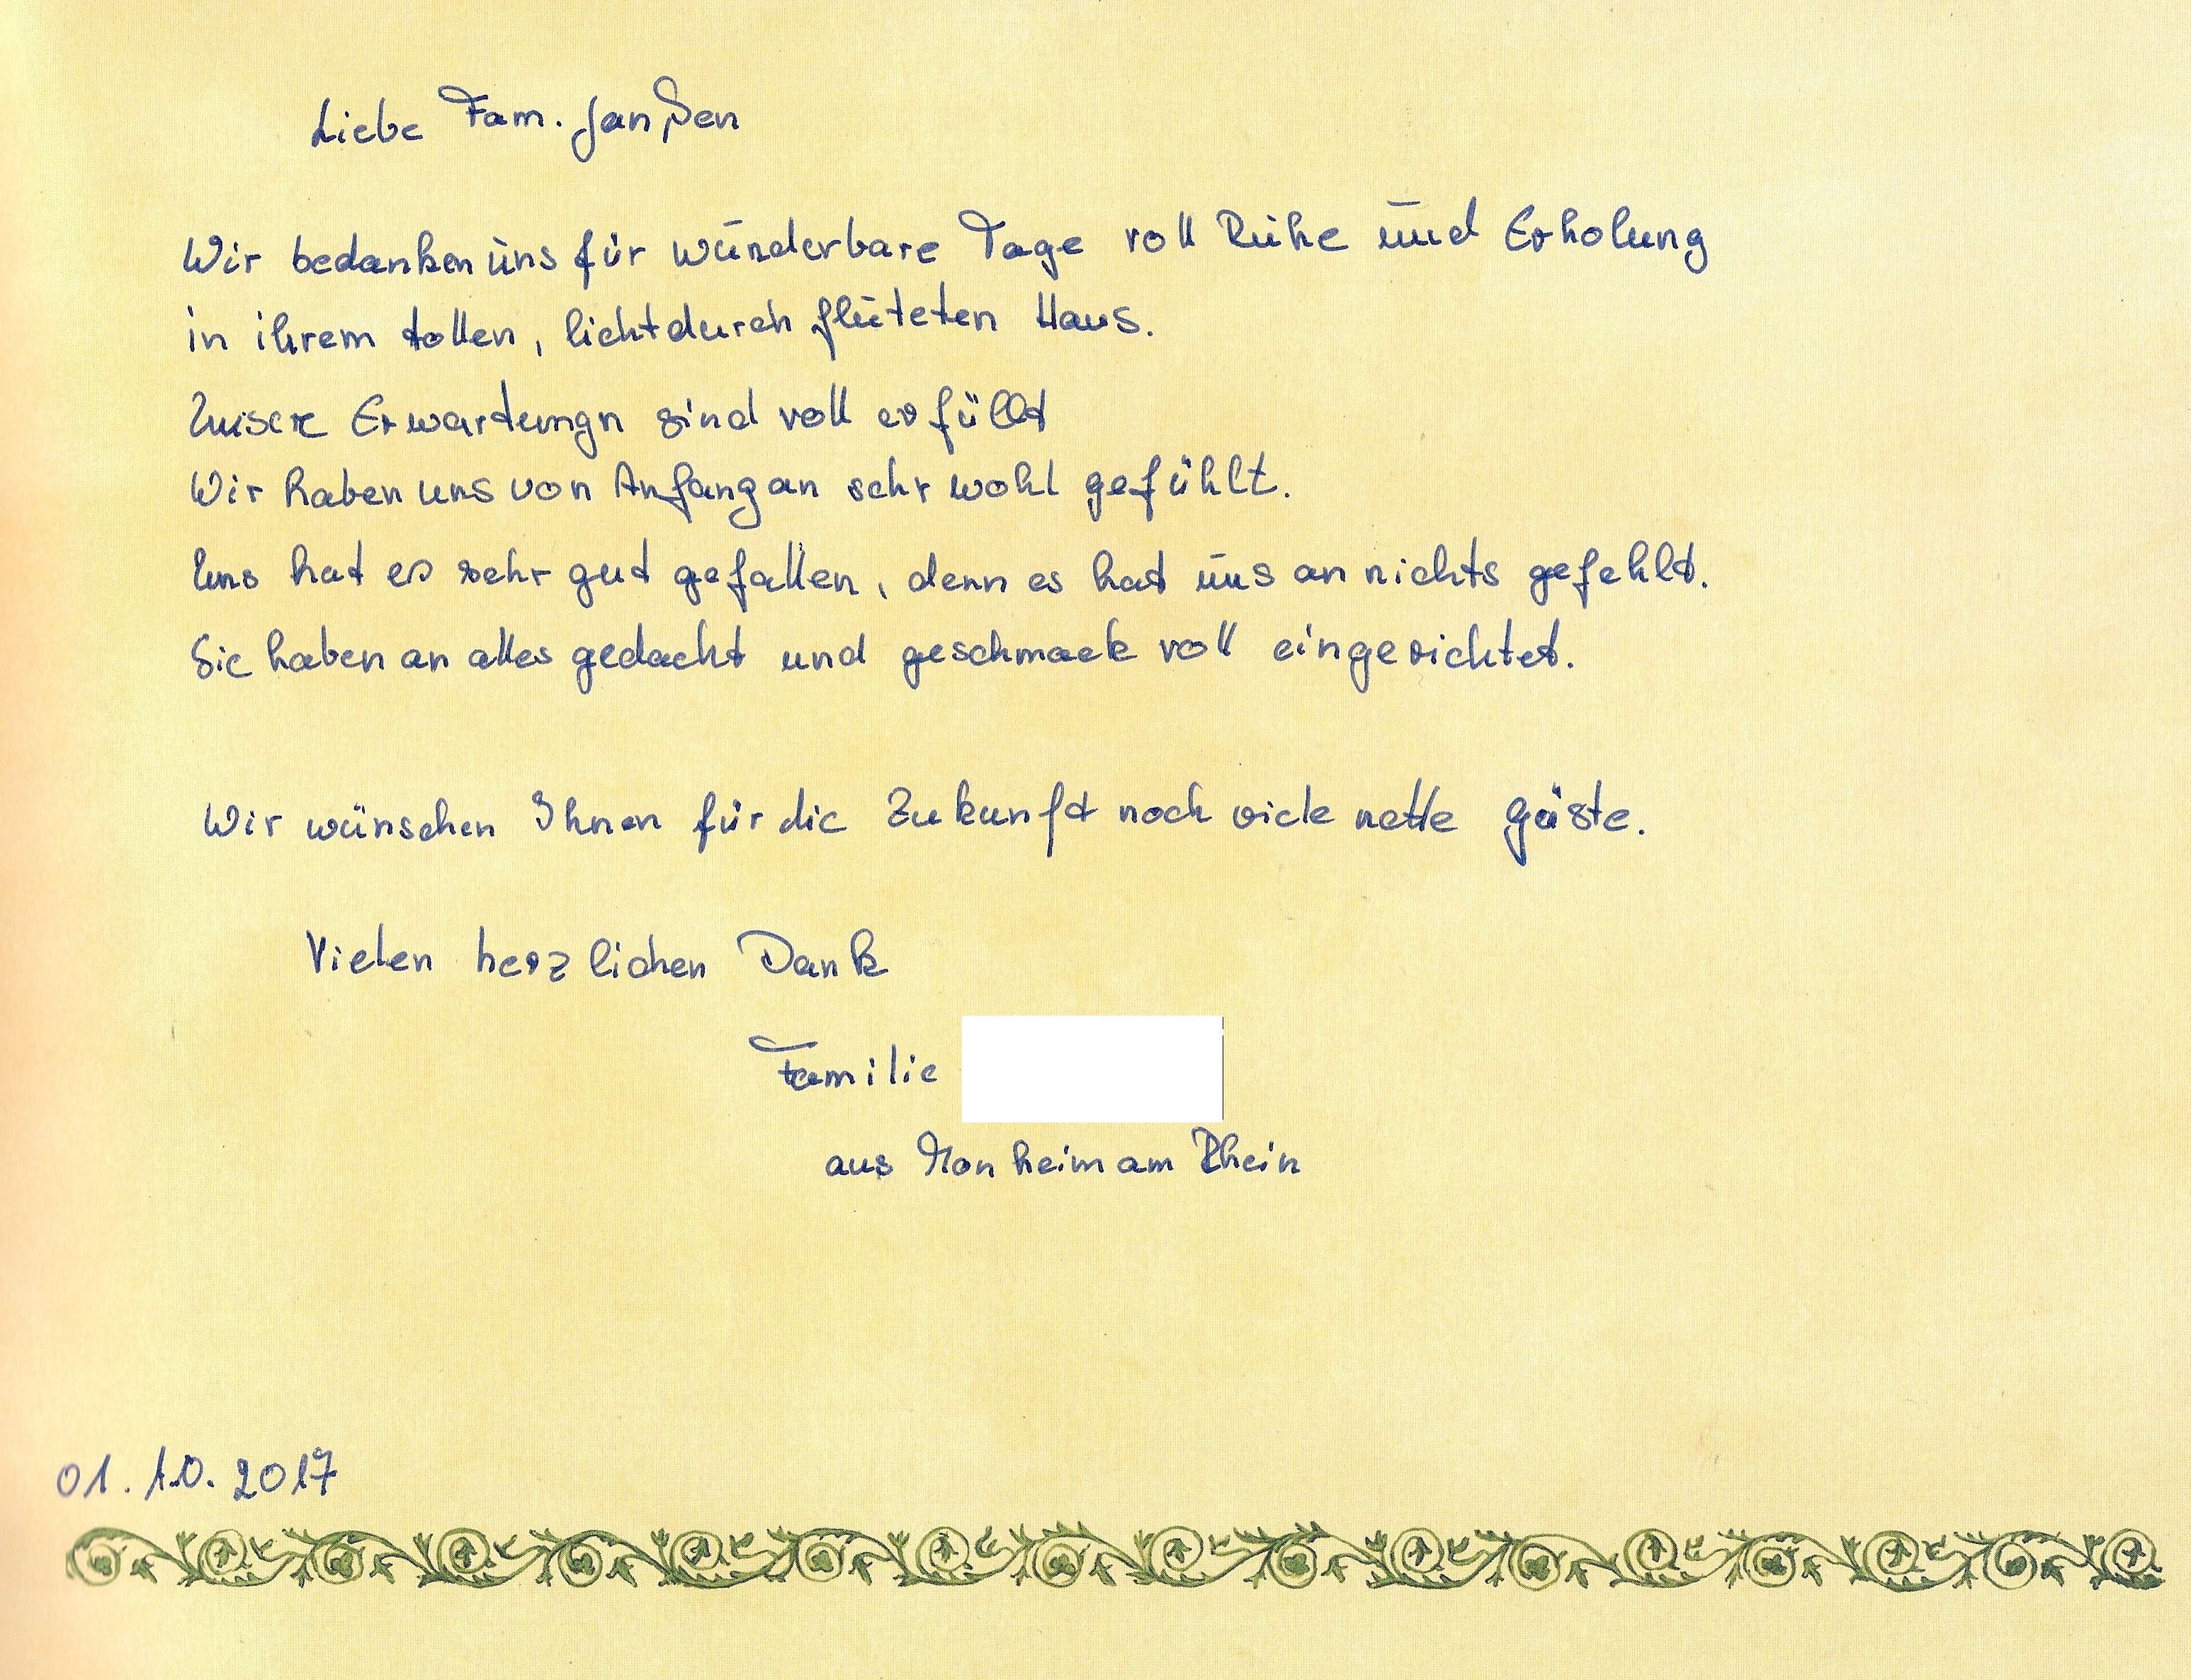 Liebe Fam. Janßen
Wir bedanken uns für wunderbare Tage voll Ruhe und Erholung
in ihrem tollen, lichtdurchfluteten Haus.
Unsere Erwartungn sind voll erfüllt
Wir haben uns von Anfang an sehr wohl gefühlt.
Uns hat es sehr gut gefallen, denn es hat uns an nichts gefehlt.
Sie haben an alles gedacht und geschmackvoll eingerichtet.
Wir wünschen Ihnen für die Zukunft noch viele nette Gäste.
Vielen herzlichen Dank
Familie
aus Monheim am Rhein
01.10.2017